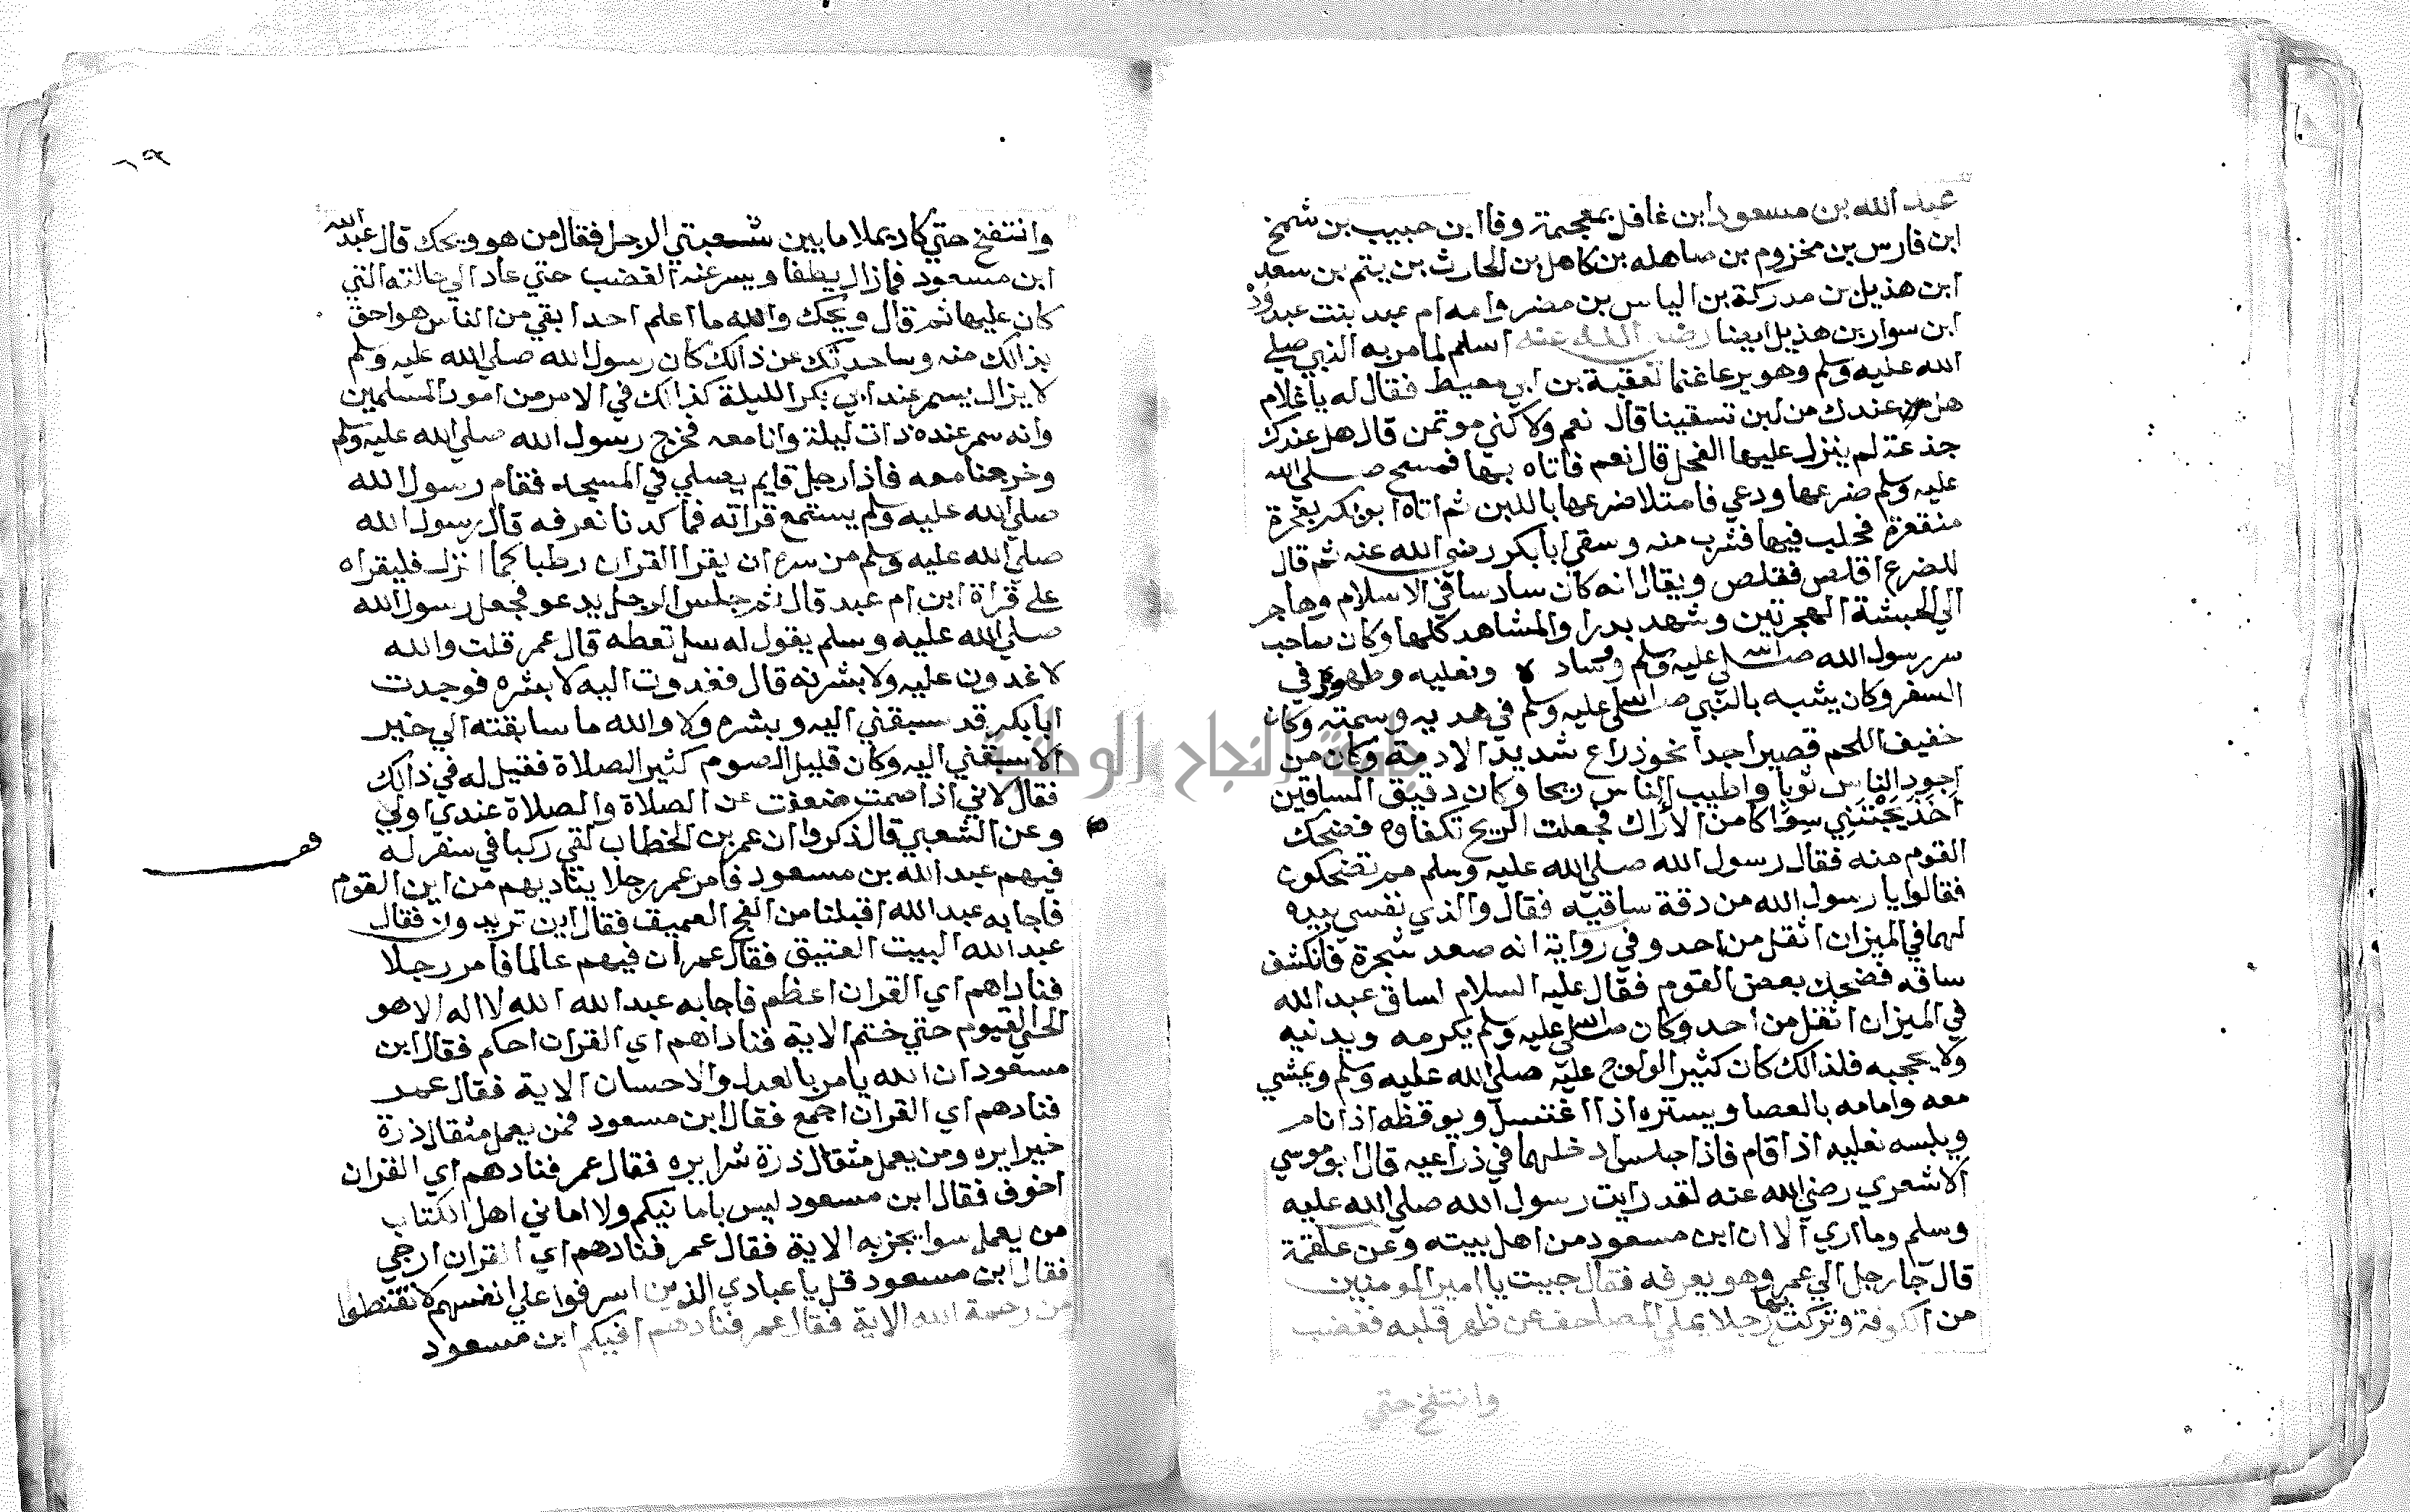 عبد الله بن مسعود ابن غافل بمعجمة وفا ابن حبيب بن شمخ
ابن فارس بن مخزوم بن صاهله بن كاهل بن الحارث بن يتم بن سعد
ابن هذيل بن مدركة بن الياس بن مضر وامه ام عبد بنت عبد ود
ابن سوار بن هذيل ايضا رضي الله عنه اسلم لما مر به النبي صلي
الله عليه وسلم وهو يرعا غنما لعقبة بن ابي معيط فقال له يا غلام
هل عندك من لبن تسقينا قال نعم ولاكني موتمن قال هل عندك
جذعة لم ينزل عليها الفحل قال نعم فاتاه بها فمسح صلي الله
عليه وسلم ضرعها ودعي فامتلا ضرعها باللبن ثم اتاه ابو بكر بفخرة
منقعرة فحلب فيها فشرب منه وسقي ابا بكر رضي الله عنه ثم قال
للضرع اقلص فقلص ويقال انه كان سادسا في الاسلام وهاجر
الي الحبشة الهجرتين وشهد بدرا والمشاهد كلها وكان صاحب
سر رسول الله صلي الله عليه وسلم وساده ونعليه وطهوره في
السفر وكان يشبه بالنبي صلي الله عليه وسلم في هديه وسمته وكان
خفيف اللحم قصيرا جدا نحو ذراع شديد الادمة وكان من
اجود الناس ثوبا واطيب الناس ريحا وكان دقيق الساقين
اخذ يجتني سواكا من الأراك فجعلت الريح تكفاوه فضحك
القوم منه فقال رسول الله صلي الله عليه وسلم مم تضحكون
فقالوا يا رسول الله من دقة ساقيه فقال والذي نفسي بيده
لهما في الميزان اثقل من احد وفي رواية انه صعد شجرة فانكشف
ساقه فضحك بعض القوم فقال عليه السلام لساق عبد الله
في الميزان اثقل من احد وكان صلي الله عليه وسلم يكرمه ويدنيه
ولا يحجبه فلذالك كان كثير الولوج عليه صلي الله عليه وسلم ويمشي
معه وامامه بالعصا ويستره اذا اغتسل ويوقظه اذا نام
ويلبسه نعليه اذا قام فاذا جلس ادخلهما في ذراعيه قال ابو موسي
الاشعري رضي الله عنه لقد رايت رسول الله صلي الله عليه
وسلم وما اري الا ان ابن مسعود من اهل بيته وعن علقمة
قال جا رجل الي عمر وهو يعرفه فقال جيت يا امير المومنين
من الكوفة وتركت بها رجلا يملي المصاحف عن ظهر قلبه فغضب
وانتفخ حتي
وانتفخ حتي كاد يملا ما بين شعبتي الرجل فقال من هو ويحك قال عبد الله
ابن مسعود فما زال يطفا ويسر عنه الغضب حتي عاد الي حالته التي
كان عليها ثم قال ويحك والله ما اعلم احدا بقي من الناس هو احق
بذالك منه وساحدثك عن ذالك كان رسول الله صلي الله عليه وسلم
لا يزال يسمر عند ابي بكر الليلة كذالك في الامر من امور المسلمين
وانه سمر عنده ذات ليلة وانا معه فخرج رسول الله صلي الله عليه وسلم
وخرجنا معه فاذا رجل قايم يصلي في المسجد فقام رسول الله
صلي الله عليه وسلم يستمع قراته فما كدنا نعرفه قال رسول الله
صلي الله عليه وسلم من سره ان يقرا القران رطبا كما انزل فليقراه
علي قراة ابن ام عبد قال ثم جلس الرجل يدعو فجعل رسول الله
صلي الله عليه وسلم يقول له سل تعطه قال عمر قلت والله
لاغدون عليه ولابشرنه قال فغدوت اليه لابشره فوجدت
ابا بكر قد سبقني اليه وبشره ولا والله ما سابقته الي خير
الا سبقني اليه وكان قليل الصوم كثير الصلاة فقيل له في ذالك
فقال لاني اذا صمت ضعفت عن الصلاة والصلاة عندي اولي
وعن الشعبي قال ذكروا ان عمر بن الخطاب لقي ركبا في سفر له
فيهم عبد الله بن مسعود فامر عمر رجلا يناديهم من اين القوم
فاجابه عبد الله اقبلنا من الفج العميق فقال اين تريدون فقال
عبد الله البيت العتيق فقال عمر ان فيهم عالما فامر رجلا
فناداهم اي القران اعظم فاجابه عبد الله الله لا اله الا هو
الحي القيوم حتي ختم الاية فناداهم اي القران احكم فقال ابن
مسعود ان الله يامر بالعدل والاحسان الاية فقال عمر
فنادهم اي القران اجمع فقال ابن مسعود فمن يعمل مثقال ذرة
خيرا يره ومن يعمل مثقال ذرة شرا يره فقال عمر فنادهم اي القران
اخوف فقال ابن مسعود ليس بامانيكم ولا اماني اهل الكتاب
من يعمل سوا يجز به الاية فقال عمر فنادهم اي القران ارجي
فقال ابن مسعود قل يا عبادي الذين اسرفوا علي انفسهم لا تقنطوا
من رحمة الله الاية فقال عمر فنادهم افيكم ابن مسعود
جامعة النجاح الوطنية